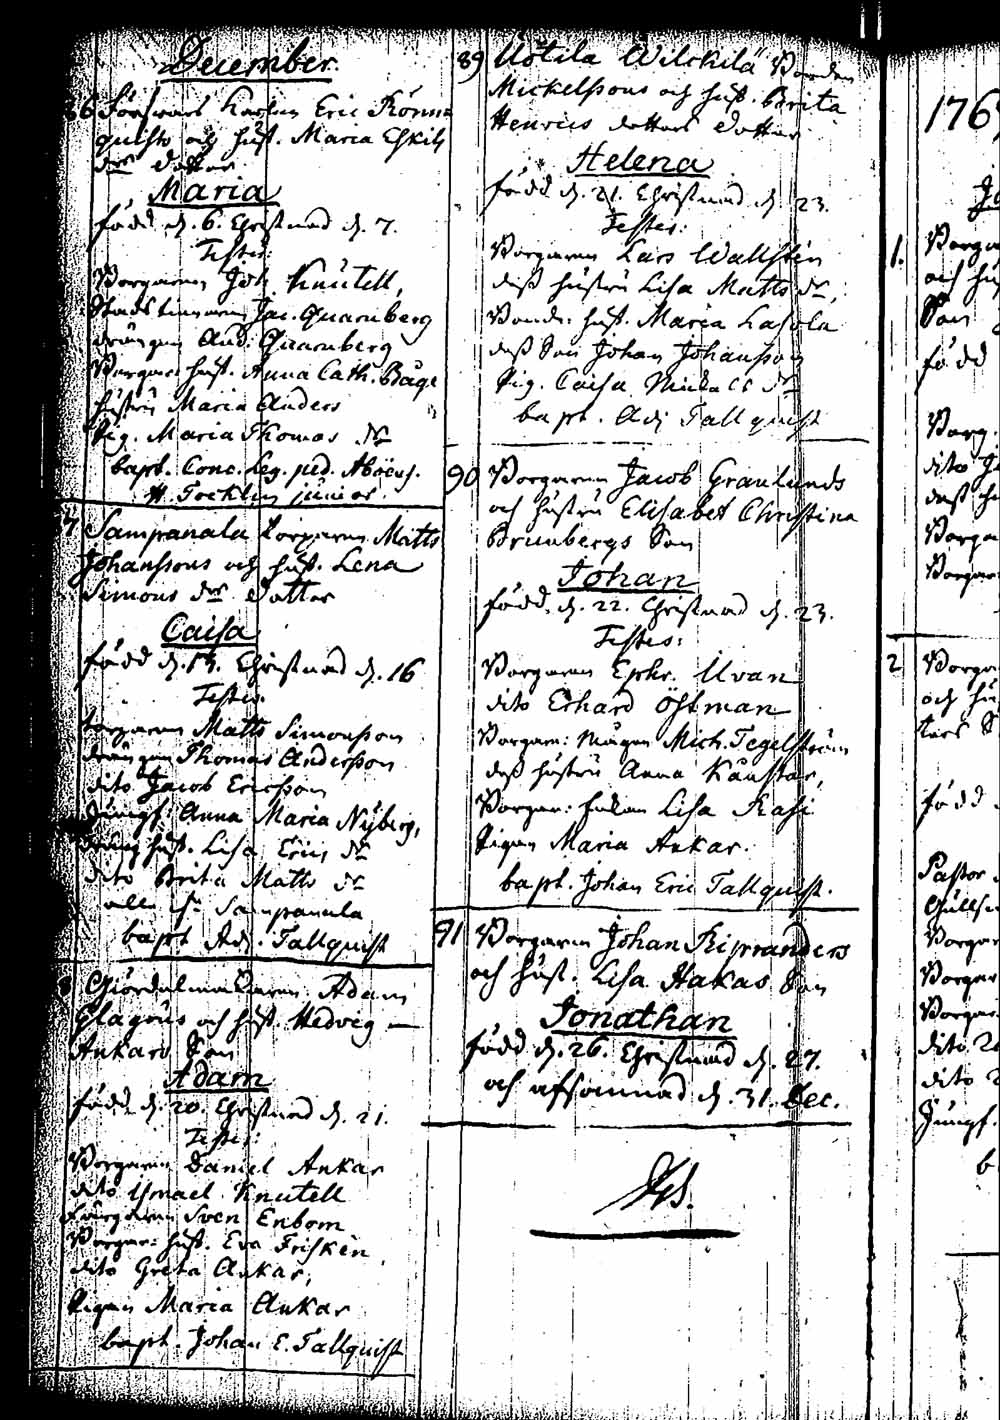 December
86 Försvars Karlen Eric Rönn=
quists och hust. Maria Eskils
dr dotter
Maria
född d. 6. Christnad d. 7.
Testes:
Borgaren Joh. Knutell,
Stads Jac. Quarnberg
drängen And. Quarnberg
Borgar: hust. Anna Cath. Båge
hustru Maria Anders
Pig. Maria Thomas dr
bapt. Conc. Leg. ped. Aboëns.
H. Forelin junior.
7 Sampanala Torparen Matts
Johanssons och hust. Lena
Simons dr dotter
Caisa
född d. 15. Christnad d. 16
Testes:
torparen Matts Simonsson
drängen Thomas Andersson
dito Jacob Ericsson
Jungf. Anna Maria Nyberg,
hust. Lisa Erics dr
dito Brita Matts dr
alle ifr. Sampanala
bapt. Adj. Tallquist
8 Giördelmakaren Adam
och hust. Hedvig
Ankars Son
Adam
född d. 20. Christnad d. 21.
Testes:
Borgaren Daniel Ankar
dito Ismael Knutell
Färgaren Sven Enbom
Borgar: hust. Eva Friskén
dito Greta Ankar,
Pigan Maria Ankar
bapt. Johan E. Tallquist
89 Uotila Wilckilä Bonden
Mickelssons och hust. Brita
Henrics dotters dotter
Helena
född d. 21. Christnad d. 23.
Testes:
Borgaren Lars Wallstén
dess hustru Lisa Matts dr,
Bonde: hust. Maria Lasola
dess Son Johan Johansson
Pig. Caisa Mickels dr
bapt. Adj Tallquist
90 Borgaren Jacob Granlunds
och hustru Elisabet Christina
Brunbergs Son
Johan
född d. 22. Christnad d. 23.
Testes:
Borgaren Ephr. Uvan
dito Erhard Östman
Borgare: Mågen Mich. Tegelström
dess hustru Anna
Borgar: Enkan Lisa Rasi
Pigan Maria Ankar.
bapt. Johan Eric Tallquist.
91 Borgaren Johan Kiprianders
och hust. Lisa Hakas Son
Jonathan
född d. 26. Christnad d. 27.
och afsomnad d. 31. Dec.
176
1. Borga
och hus
Son
född
Borg.
dito J
dess hu
Borga
Borgar
2 Borga
och hu
född
Pastor
Gulls
Borgar
Borgar
Borgar
dito
dito
Jungf.
b